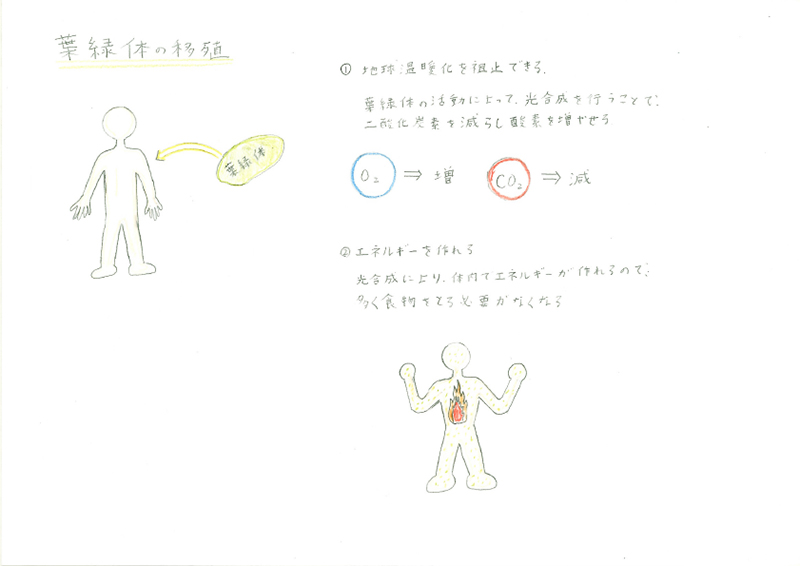 葉緑体の移殖
葉緑体
① 地球温暖化を祖止できる.
葉緑体の活動によって、光合成を行うことで、
二酸化炭素を減らし酸素を増やせる
O₂ ⇒ 増 CO₂ ⇒ 減
② エネルギーを作れる
光合成により、体内でエネルギーが作れるので、
多く食物をとる必要がなくなる